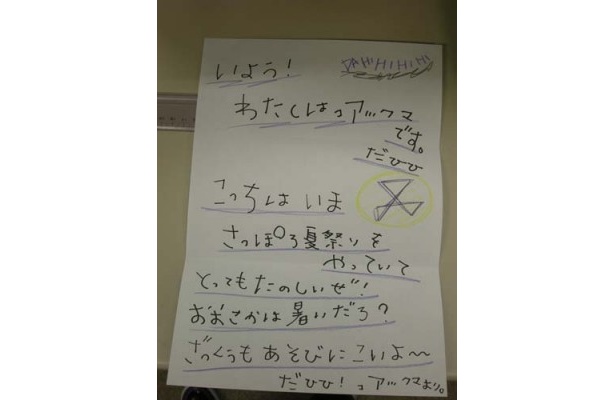 いよう！ DAHiHiHiHi
わたくしはコアックマ
です。
だひひ
こっちは いま
さっぽろ夏祭りを
やっていて
とってもたのしいぜ！
おおさかは暑いだろ？
ざっくぅも あそびにこいよ〜〜
だひひ！コアックマより。